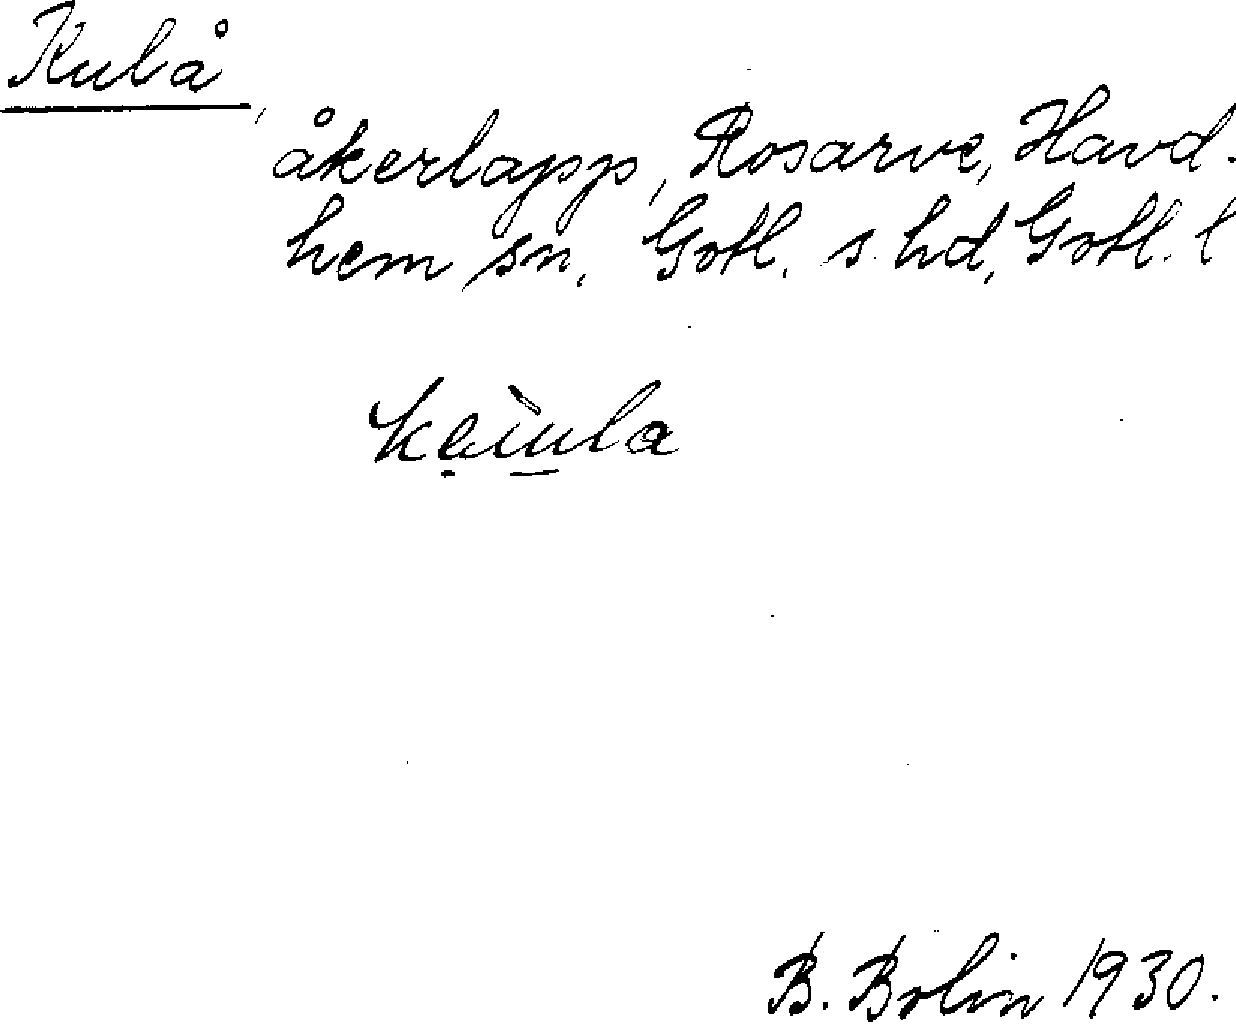 Kulå,
åkerlapp, Rosarve, Havd-
hem sn, Gotl. s. hd, Gotl. l
keìula
B. Bolin 1930.